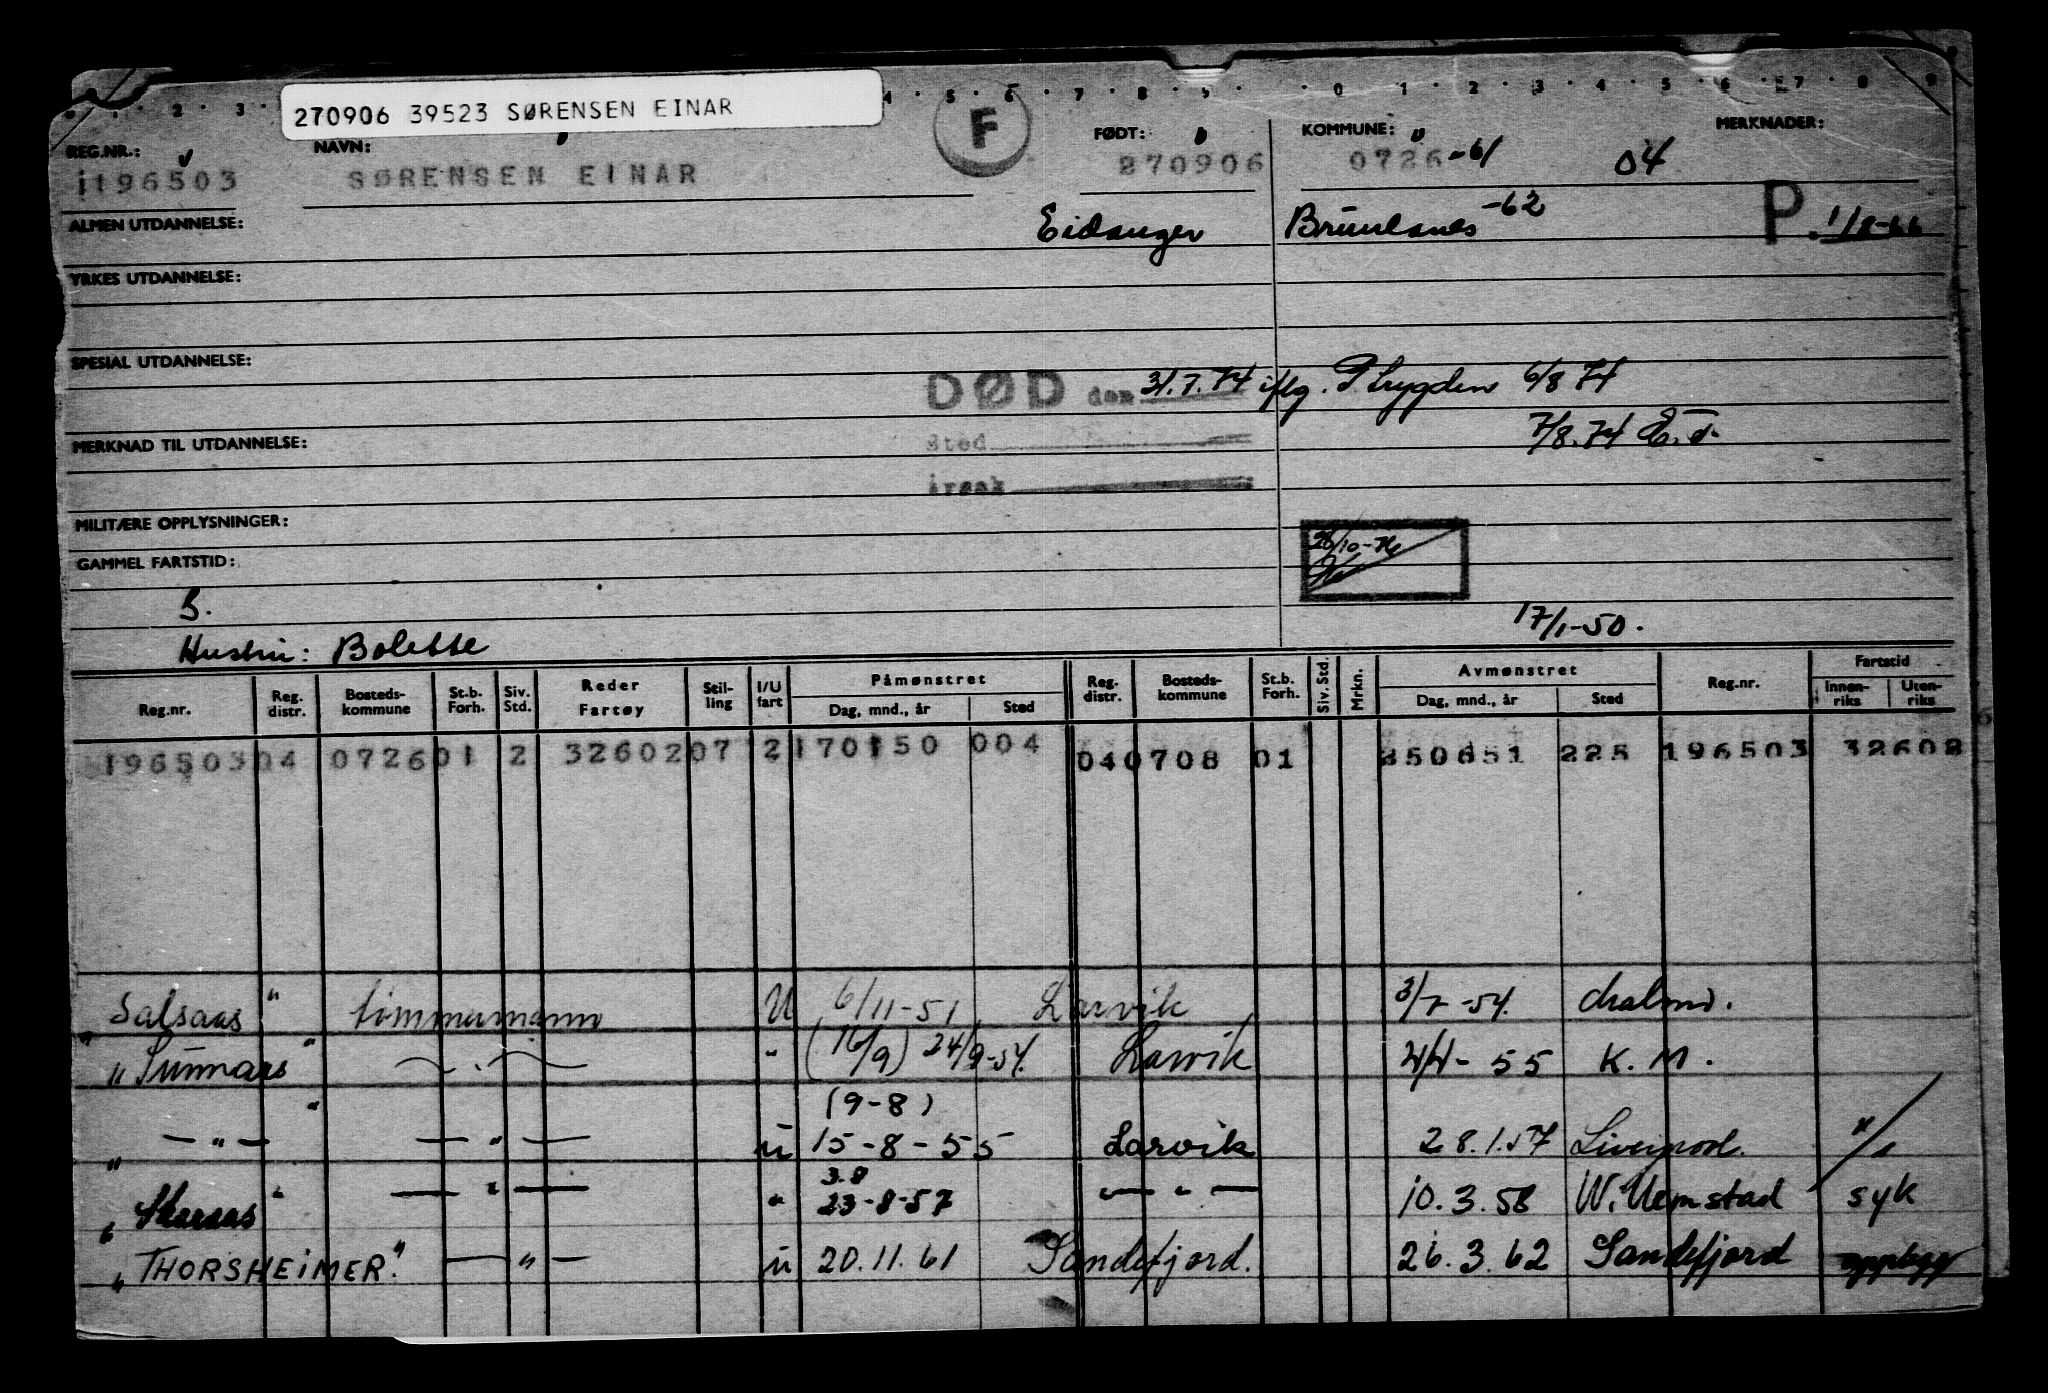 270906 39523 SØRENSEN EINAR
F
REG.NR.: NAVN: FØDT: KOMMUNE: MERKNADER:
196503 SØRENSEN EINAR 270906 0726 -61 04
ALMEN UTDANNELSE: Eidanger Brunlanes -62 P. 1/8-66
YRKES UTDANNELSE:
SPESIAL UTDANNELSE:
DØD den 31.7.74 iflg. P. trygden 6/8 74
MERKNAD TIL UTDANNELSE: sted 7/8.74 E.T.
årsak
MILITÆRE OPPLYSNINGER:
GAMMEL FARTSTID:
S.
17/1-50.
Hustru: Bolette
Reg.nr. Reg. distr. Bosteds- kommune St.b. Forh. Siv. Std. Reder Fartøy Stil- ling I/U fart Påmønstret Dag, mnd., år Sted Reg. distr. Bosteds- kommune St.b. Forh. Siv. Std. Mrkn. Avmønstret Dag, mnd., år Sted Reg.nr. Fartstid Innen- riks Uten- riks
196503 04 0726 01 2 32602 07 2 170150 004 04 0708 01 250651 225 196503 32602
" Salsaas " timmermann U 6/11-51 Larvik 3/7-54. Malmø.
" Sunnaas " — " — " (16/9) 24/9-54. Larvik 4/4-55 K.M.
(9-8)
" — " — " — " — u 15-8-55 Larvik 28.1.57 Liverpool.
3.8
" Skaraas " — " — " 23-8-57 — " — 10.3.58 W.Hemstad syk
" THORSHEIMER." — " — u 20.11.61 Sandefjord. 26.3.62 Sandefjord opplegg